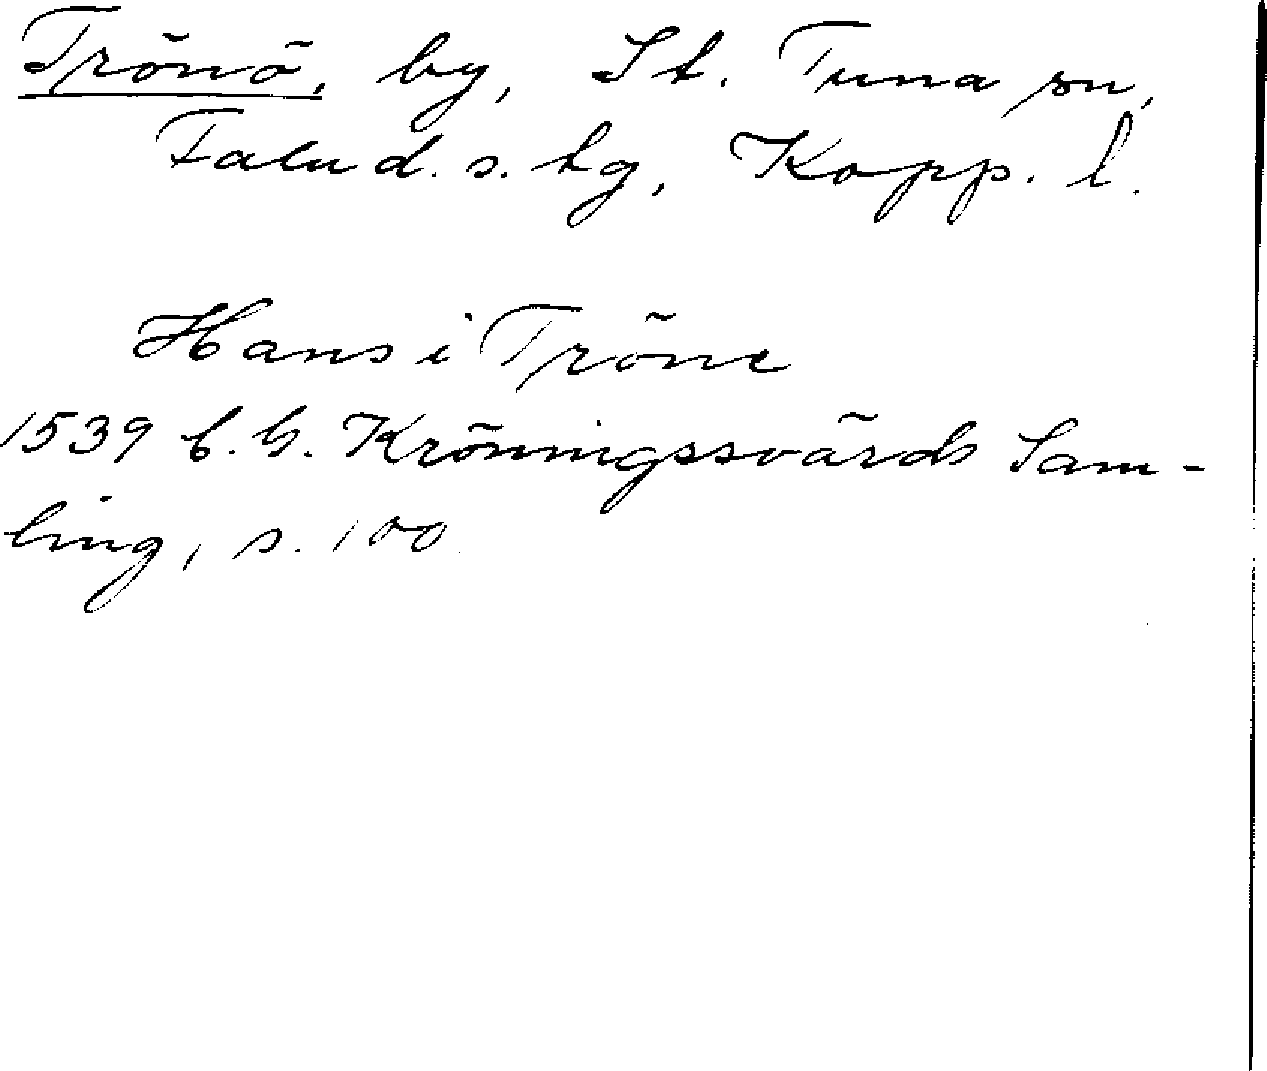 Trönö, by, St. Tuna sn,
Falu d. s. tg, Kopp. l.
Hans i Tröne
1539 C. G. Kröningssvärds Sam-
ling, s. 100